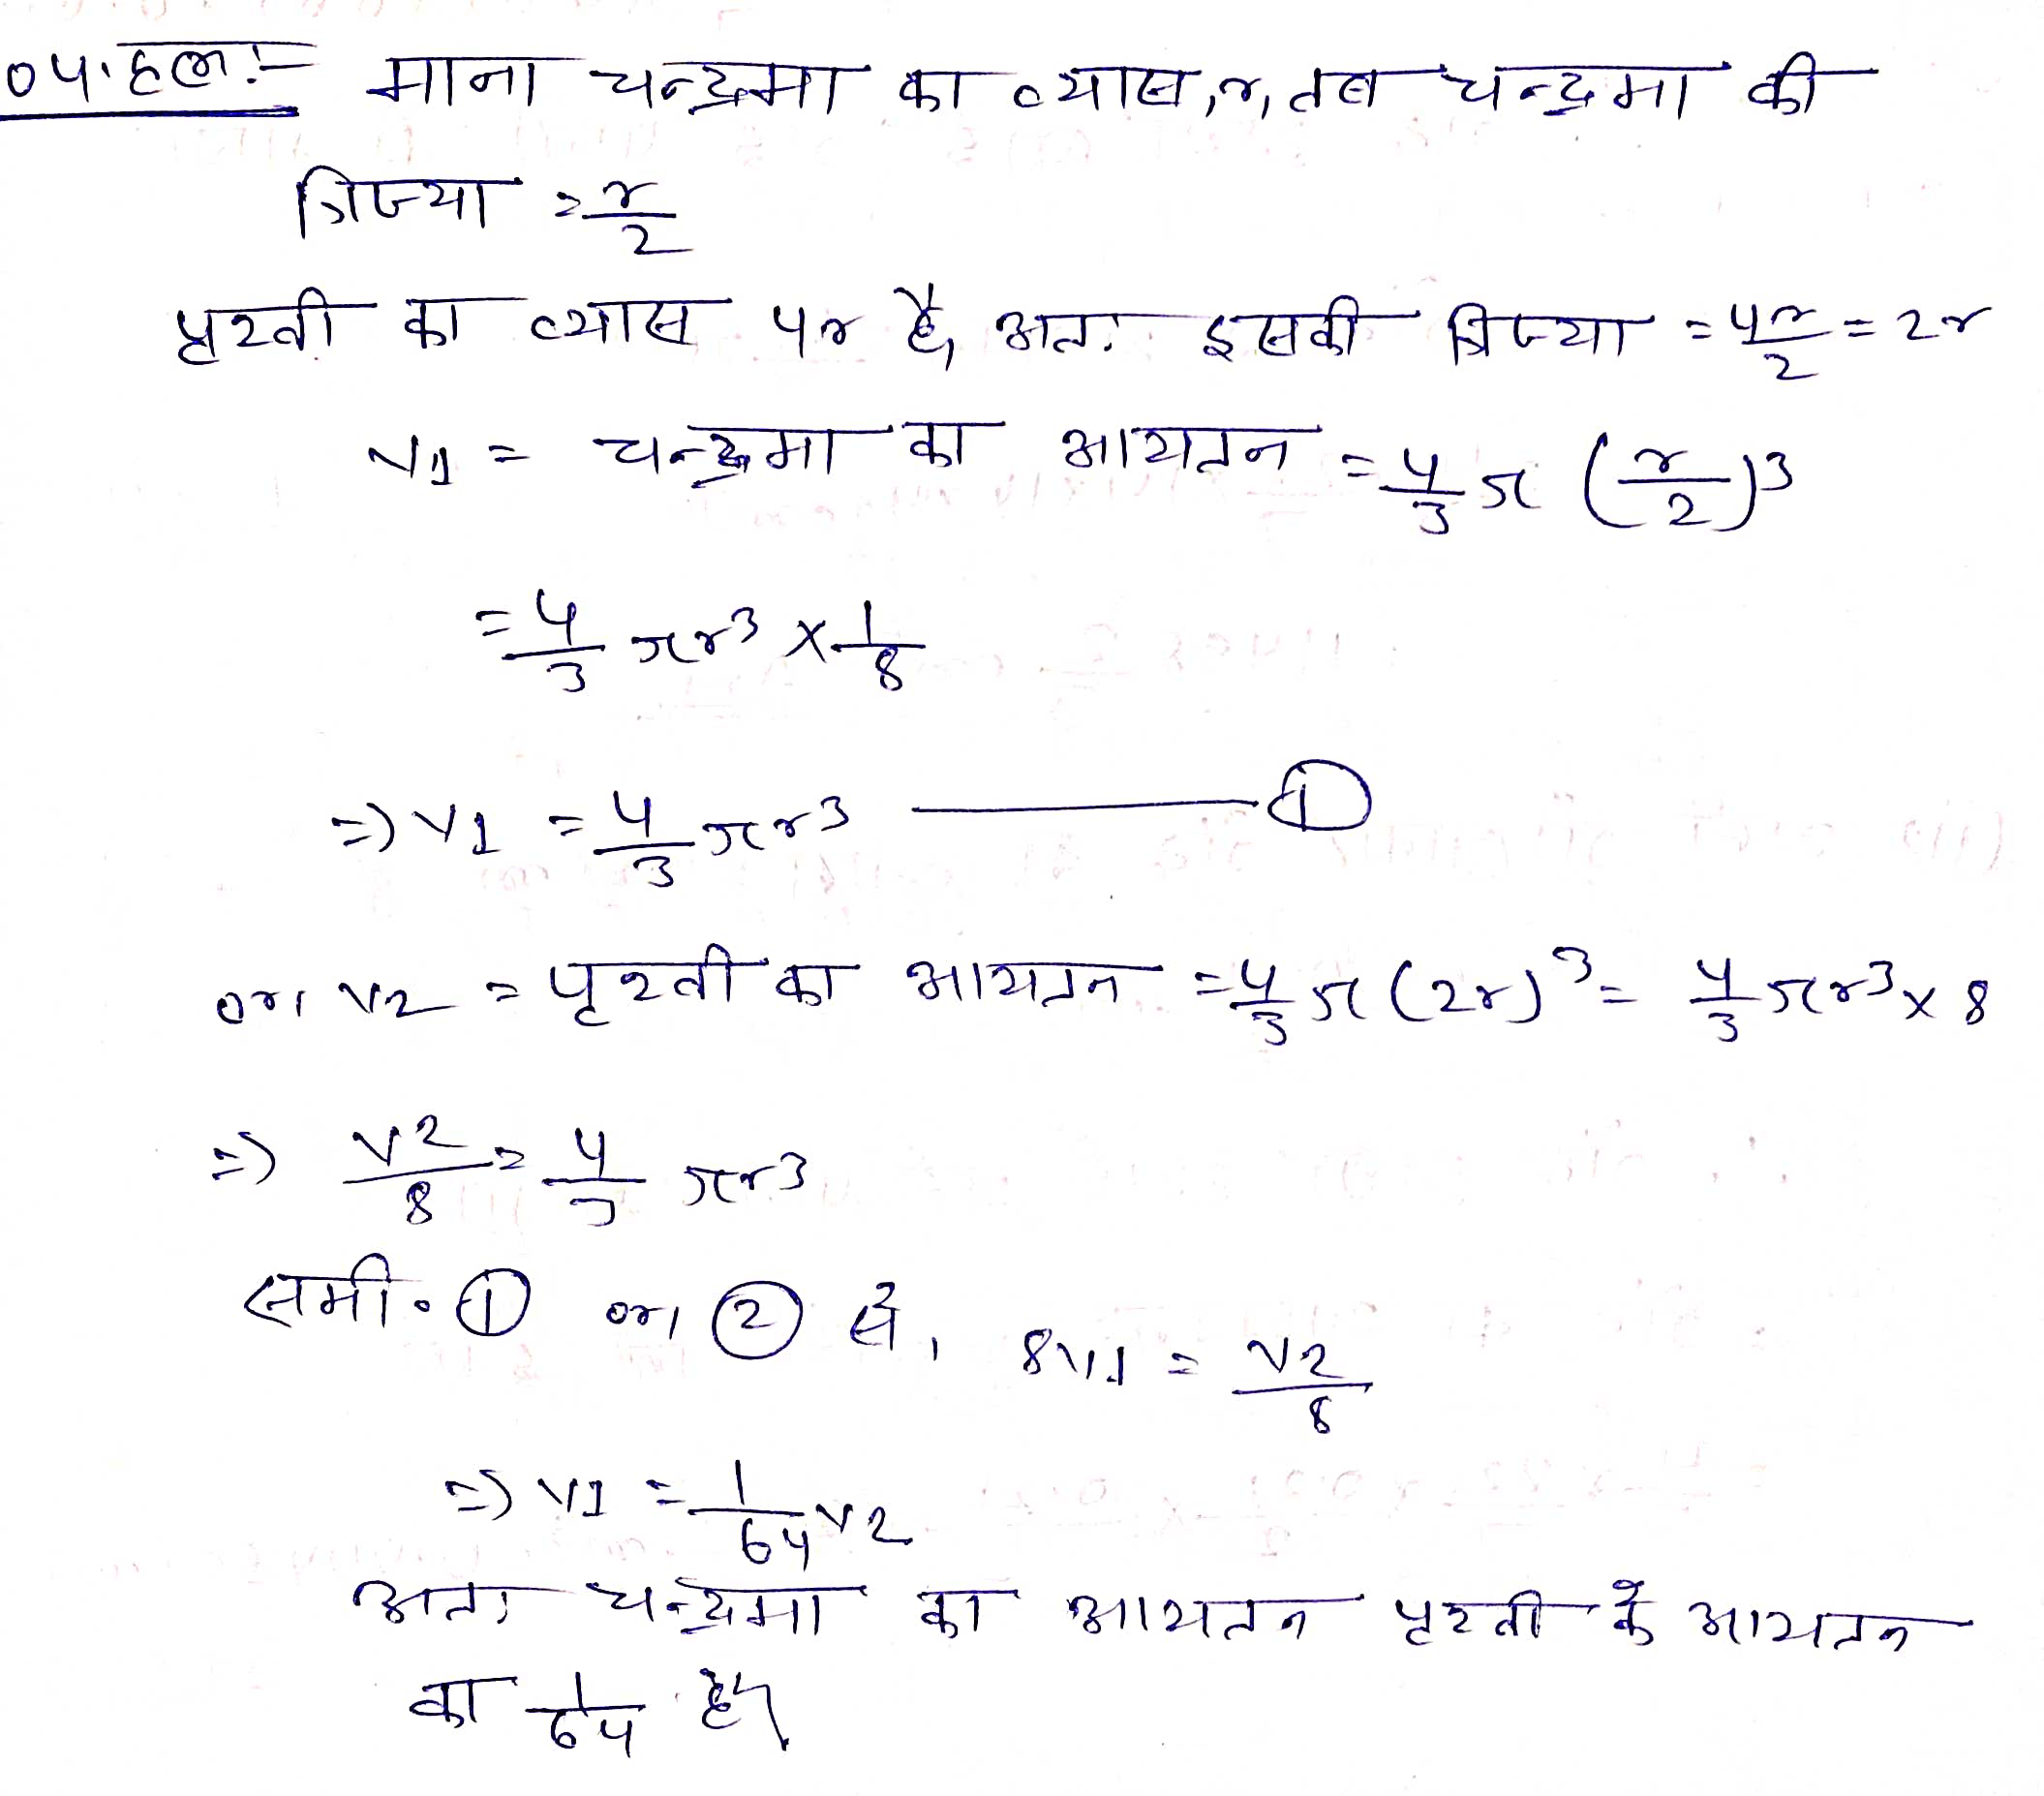 04. हल:- माना चन्द्रमा का व्यास, r, तब चन्द्रमा की
त्रिज्या = r/2
पृथ्वी का व्यास 4r है, अतः इसकी त्रिज्या = 4r/2 = 2r
V1 = चन्द्रमा का आयतन = 4/3 π (r/2)3
= 4/3 πr3 × 1/8
=) V1 = 4/3 πr3 ——— ①
or, V2 = पृथ्वी का आयतन = 4/3 π (2r)3 = 4/3 πr3 × 8
=) V2/8 = 4/3 πr3
समी. ① or, ② से, 8V1 = V2/8
=) V1 = 1/64 V2
अतः चन्द्रमा का आयतन पृथ्वी के आयतन
का 1/64 है।